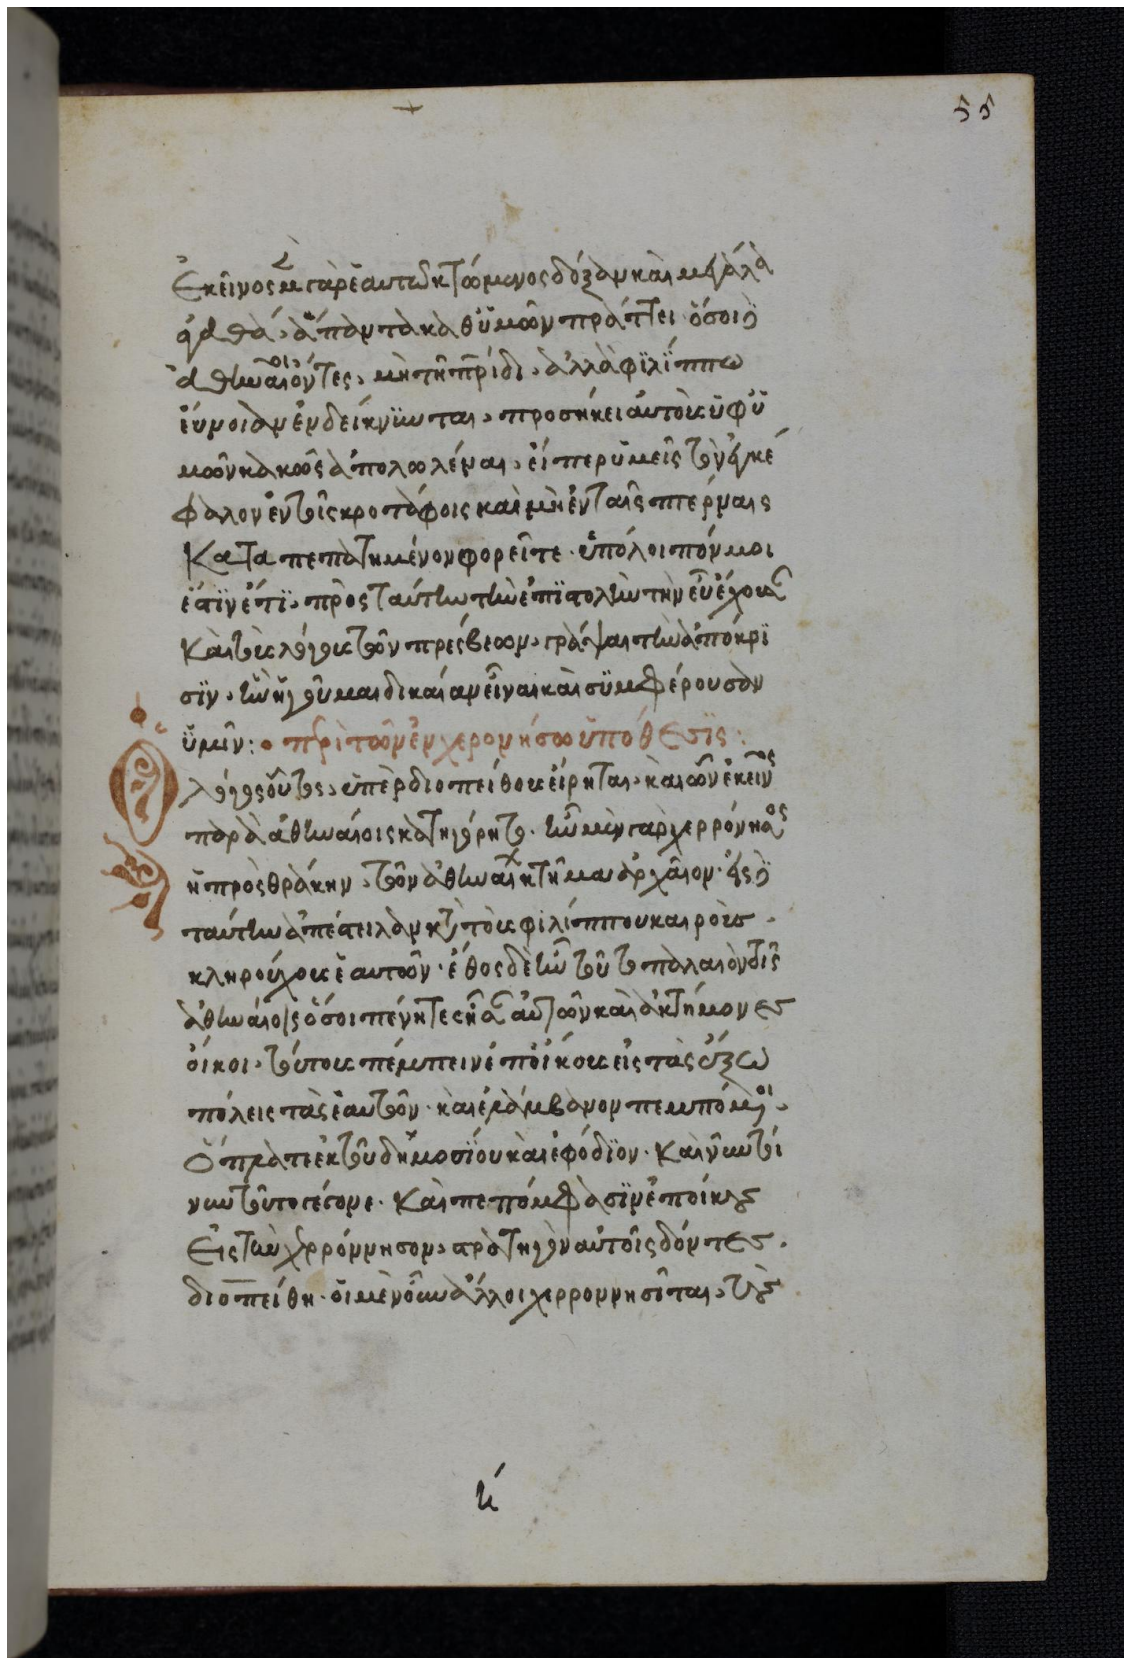 55
ἐκεῖνος μὲν γὰρ ἑαυτῶ κτώμενος δόξαν καὶ μεγάλα
ἀγαθά, ἅπαντα καθ ὑμῶν πράττει ὅσοι δὲ
ἀθηναῖοι ὄντες, μὴ τῆ πατρίδι, ἀλλὰ φιλίππω
εὔνοιαν ἐνδείκνυνται, προσήκει αὐτοὺς ὑφ ὑ
μῶν κακοὺς ἀπολωλέναι, εἴπερ ὑμεῖς τὸν ἐγκέ
φαλον ἐν τοῖς κροτάφοις καὶ μὴ ἐν ταῖς πτέρναις
καταπεπατημένον φορεῖτε. ὑπόλοιπόν μοι
ἐστὶν ἔτι, πρὸς ταύτην τὴν ἐπιστολὴν τὴν εὖ ἔχουσαν
καὶ τοὺς λόγους τῶν πρέσβεων, γράψαι τὴν ἀπόκρι
σιν, ἣν ἡγοῦμαι δικαίαν εἶναι καὶ συμφέρουσαν
ὑμῖν: περὶ τῶν ἐν χερονήσω ὑπόθεσις:
λόγος οὗτος, ὑπὲρ διοπείθους εἴρηται, καὶ ὧν ἐκεῖνος
παρὰ ἀθηναίοις κατηγόρητο. ἦν μὲν γὰρ χερρόνησος
ἡ πρὸς θράκην, τῶν ἀθηναίων κτῆμα ἀρχαῖον. εἰς δὲ
ταύτην ἀπέστειλαν κατὰ τοὺς φιλίππου καιροὺς
κληρούχους ἑαυτῶν. ἔθος δὲ ἦν τοῦτο παλαιὸν τοῖς
ἀθηναίοις ὅσοι πένητες ἦσαν αὐτῶν καὶ ἀκτήμονες
οἴκοι, τούτους πέμπειν ἐποίκους εἰς τὰς ἔξω
πόλεις τὰς ἑαυτῶν. καὶ ἐλάμβανον πεμπόμενοι,
ὅπλά τε ἐκ τοῦ δημοσίου καὶ ἐφόδιον. καὶ νῦν τοί
νυν τοῦτο γέγονε. καὶ πεπόμφασιν ἐποίκους
εἰς τὴν χερρόννησον, στρατηγὸν αὐτοῖς δόντες.
διοπείθη. οἱ μὲν οὖν ἄλλοι χερροννησῖται, τοὺς